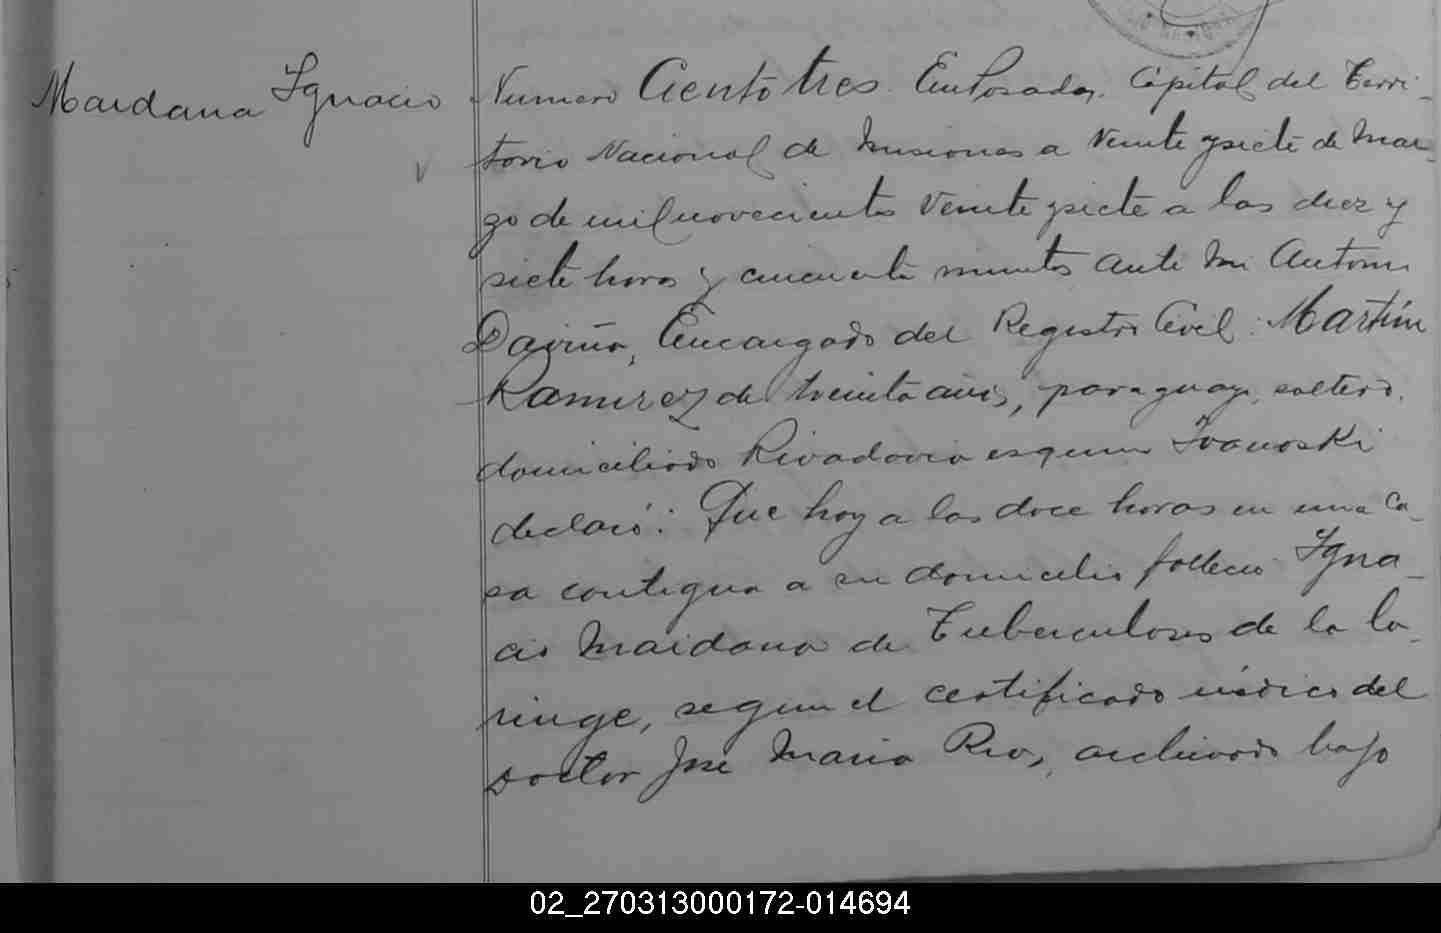 Maidana Ignacio
Numero Ciento tres. En Posadas, Capital del Terri-
torio Nacional de Misiones a veinte y siete de mar-
zo de mil novecientos veinte y siete a las diez y
siete horas y cincuenta minutos ante mi Antonio
Daviña, Encargado del Registro Civil: Martin
Ramirez de treinta años, paraguayo, soltero,
domiciliado Rivadavia esquina Ivanoski
declaró: Que hoy a las doce horas en una ca-
sa contigua a su domicilio fallecio Igna-
cio Maidana de Tuberculosis de la la-
ringe, segun el certificado médico del
Doctor José Maria Rios, archivado bajo
02_270313000172-014694